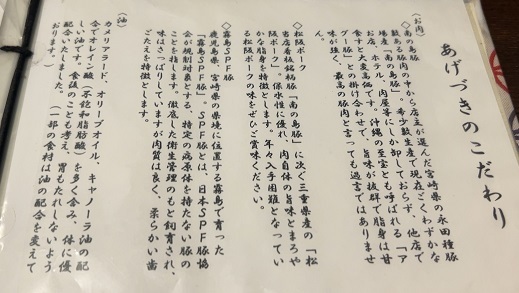 あげづきのこだわり
(お肉)
数ある豚肉の中から店主が選んだ宮崎県の永田種豚
場産「南の島豚」。希少数生産で現在ごくわずかな
お店、ホテル、肉屋等にしか卸しておらず、他店で
食すと大変高価です。沖縄の至宝とも呼ばれる「ア
グー豚」との掛け合わせで、旨味が抜群で脂身は甘
味が強く、最高の豚肉と言っても過言ではありませ
ん。
◇松阪ポーク
当店看板銘柄豚「南の島豚」に次ぐ三重県産の「松
阪ポーク」。保水性に優れ、肉自体の旨味とまろや
かな脂身を特徴とします。年々入手困難となってい
る松阪ポークの味をぜひご賞味ください。
◇霧島SPF豚
鹿児島県、宮崎県の県境に位置する霧島で育った
「霧島SPF豚」。SPF豚とは、日本SPF豚協
会が規制対象とする、特定の病原体を持たない豚の
ことを指します。徹底した衛生管理のもと飼育され、
味はさっぱりしていますが肉質は良く、柔らかい歯
ごたえを特徴とします。
(油)
カメリアラード、オリーブオイル、キャノーラ油の配
合でオレイン酸(不飽和脂肪酸)を多く含み、体に優
しい油です。食後のことも考え、胃もたれしないよう
配合いたしました。(一部の食材は油の配合を変えて
おります。)